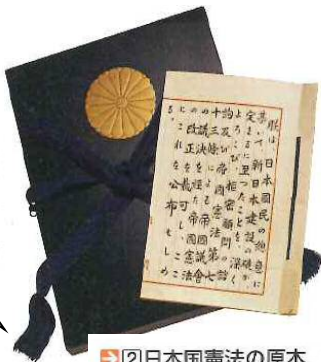 朕は、日本國民の總意に
基いて、新日本建設の礎が、
定まるに至つたことを、深く
よろこび、樞密顧問の諮
詢及び帝國憲法第七
十三條による帝國議會
の議決を經た帝國憲法
の改正を裁可し、ここ
にこれを公布せしめ
る。
2日本国憲法の原本